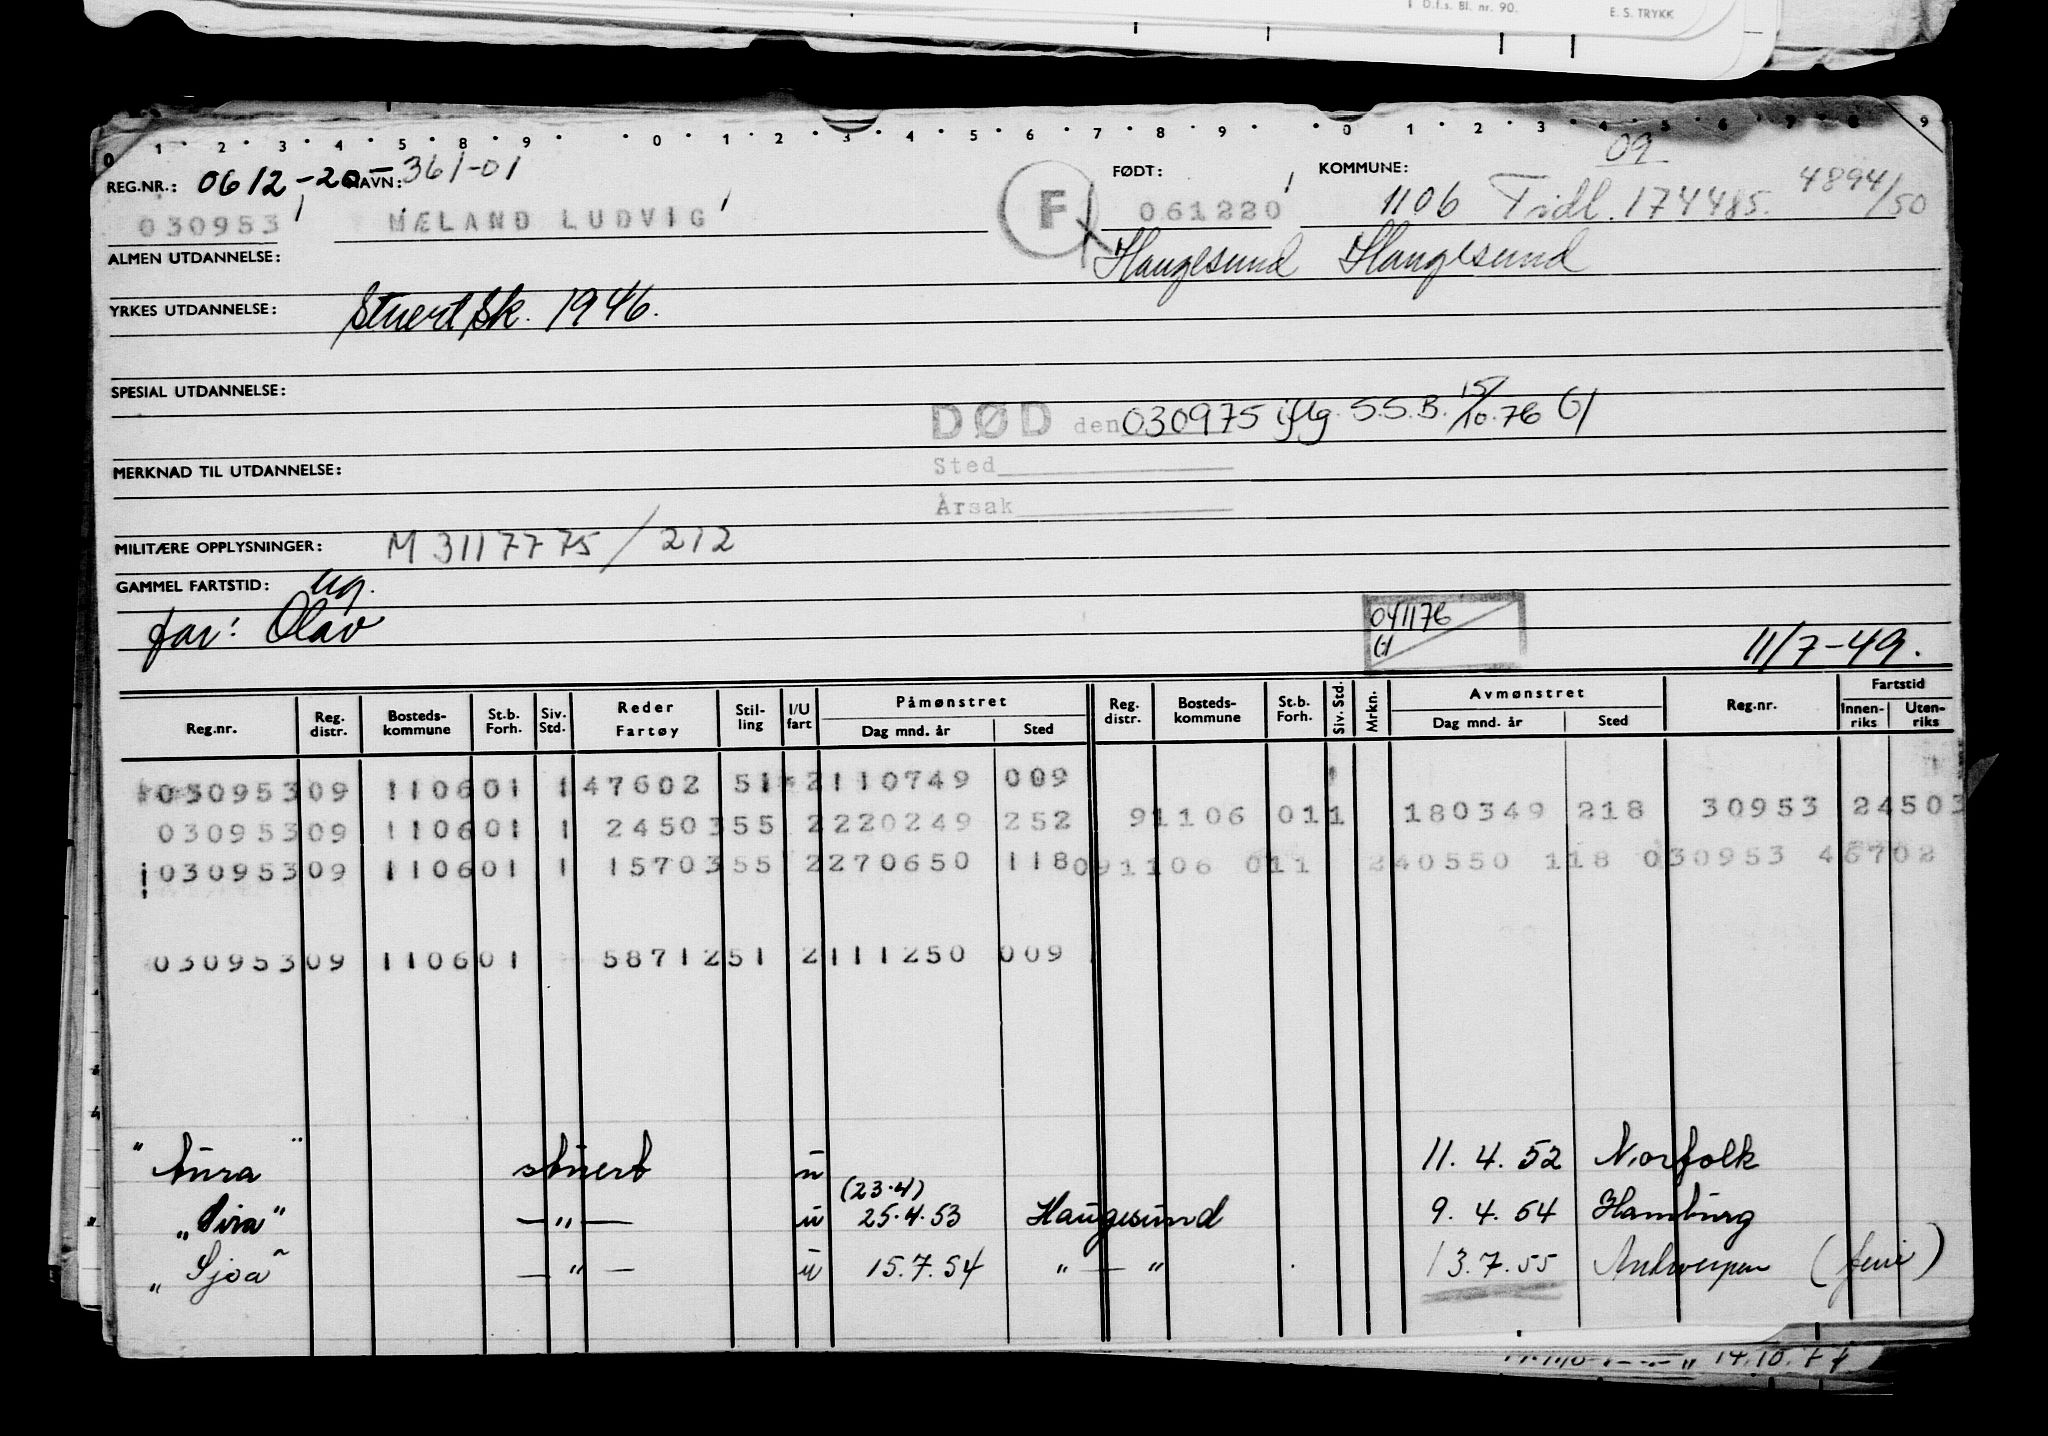 D.f.s. Bl. nr. 90. E. S. TRYKK
0 1 2 3 4 5 6 8 9 0 1 2 3 4 5 6 7 8 9 0 1 2 3 4 5 6 7 8 9
REG.NR.: 0612-20 NAVN: 361-01 FØDT: KOMMUNE: 09
030953 MÆLAND LUDVIG F 061220 1106 Tidl. 174485. 4894/50
ALMEN UTDANNELSE: Haugesund Haugesund
YRKES UTDANNELSE: Stuert sk. 1946.
SPESIAL UTDANNELSE:
DØD den 030975 iflg. S.S.B. 15/10.76 GJ
MERKNAD TIL UTDANNELSE: Sted
Årsak
MILITÆRE OPPLYSNINGER: M 3117775/212
GAMMEL FARTSTID: ug.
far: Olav 041176 GJ 11/7-49.
Reg.nr. Reg. distr. Bosteds-kommune St.b. Forh. Siv. Std. Reder Fartøy Stil-ling I/U fart Påmønstret Dag mnd. år Sted Reg. distr. Bosteds-kommune St.b. Forh. Siv. Std. Mrkn. Avmønstret Dag mnd. år Sted Reg.nr. Fartstid Innen-riks Uten-riks
030953 09 1106 01 1 47602 51 2 110749 009
030953 09 1106 01 1 24503 55 2 220249 252 9 1106 01 1 180349 218 30953 24503
030953 09 1106 01 1 15703 55 2 270650 118 09 1106 01 1 240550 118 030953 46702
030953 09 1106 01 58712 51 2 111250 009
"Aura" stuert u 11. 4. 52 Norfolk
(23.4)
"Sira" — " — u 25.4.53 Haugesund 9. 4. 54 Hamburg
"Sjoa" — " — u 15.7.54 " — " 13.7.55 Antwerpen (ferie)
14.10.77